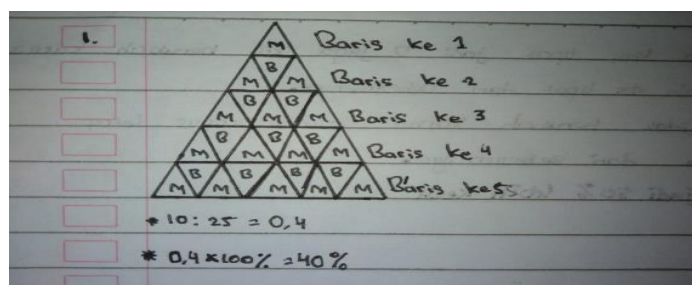 1.
M Baris ke 1
B
M M Baris ke 2
B B
M M M Baris ke 3
B B B
M M M M Baris ke 4
B B B B
M M M M M Baris ke 5
* 10 : 25 = 0,4
* 0,4 x 100% = 40%